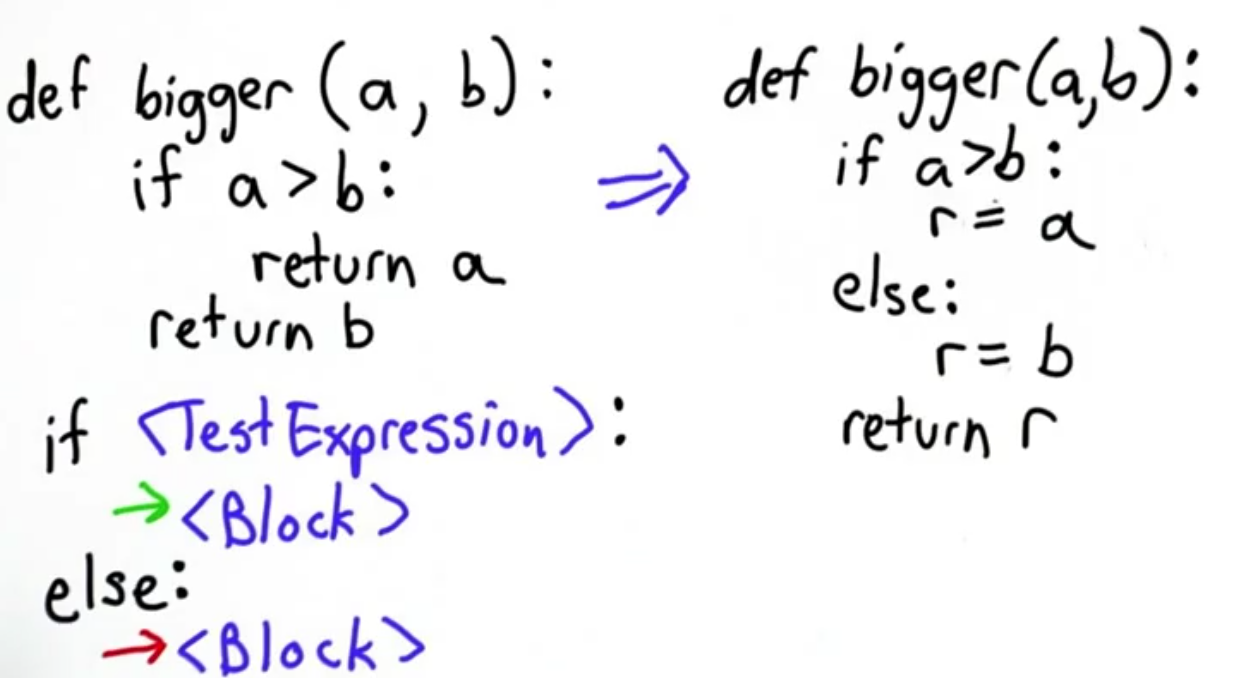 def bigger (a, b):
if a > b:
return a
return b
if <Test Expression>:
→ <Block>
else:
→ <Block>
⇒
def bigger(a,b):
if a>b:
r = a
else:
r = b
return r